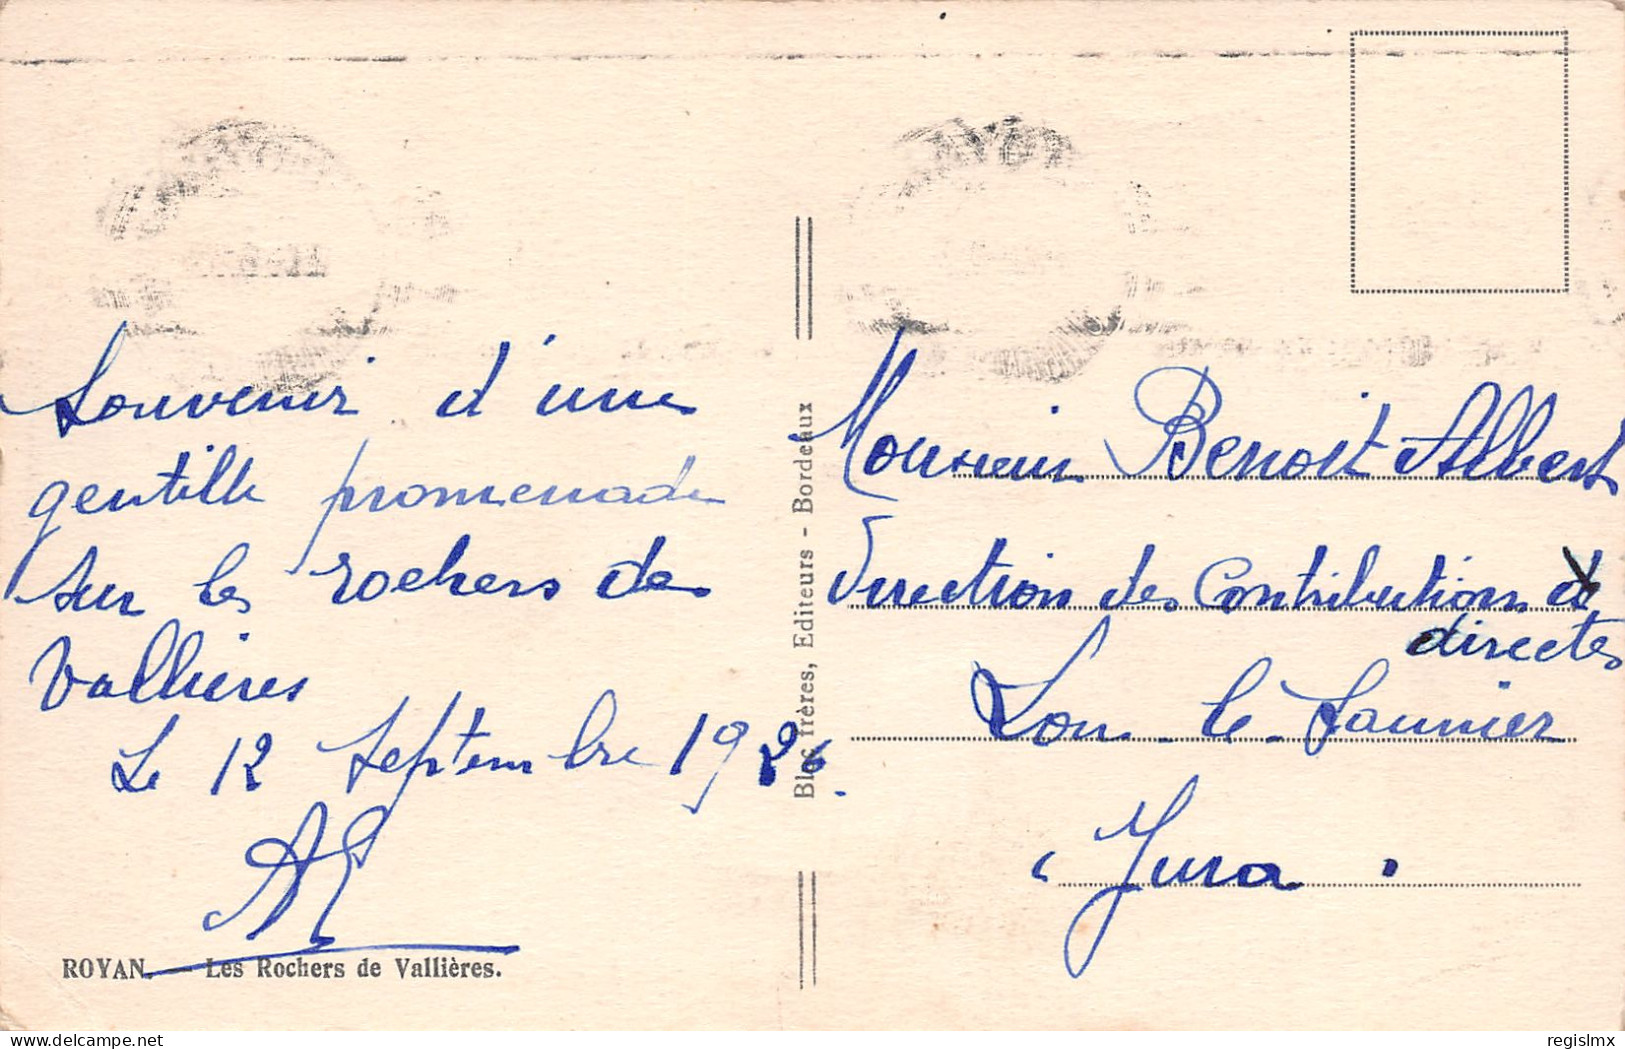 Souvenir d'une
gentille promenade
sur les rochers de
Vallières
Le 12 Septembre 1926.
ROYAN. — Les Rochers de Vallières.
Bloc frères, Editeurs - Bordeaux
Monsieur Benoit Albert
Direction des Contributions
directes
Lons-le-Saunier
Jura
delcampe.net
regislmx